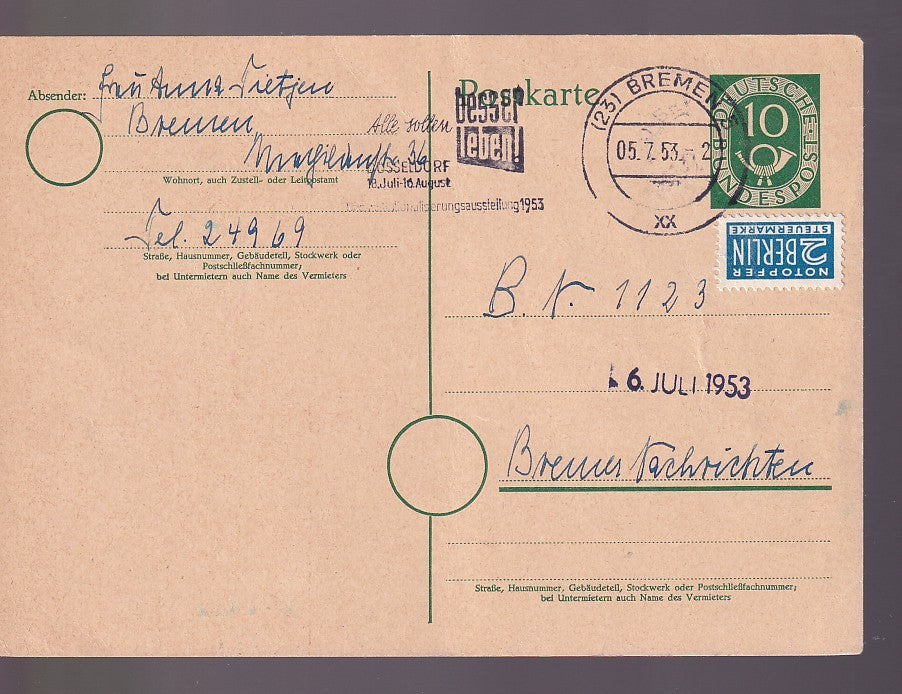 Absender: Frau Anna Tietjen
Bremen
36
Wohnort, auch Zustell- oder Leitpostamt
Tel. 24969
Straße, Hausnummer, Gebäudeteil, Stockwerk oder
Postschließfachnummer;
bei Untermietern auch Name des Vermieters
Postkarte
Alle sollen
besser
leben!
DÜSSELDORF
18.Juli-16.August
1953
(23) BREMEN
05.7.53.-2
XX
DEUTSCHE
BUNDESPOST
10
NOTOPFER
2 BERLIN
STEUERMARKE
B. N. 1123
6. JULI 1953
Bremer Nachrichten
Straße, Hausnummer, Gebäudeteil, Stockwerk oder Postschließfachnummer;
bei Untermietern auch Name des Vermieters